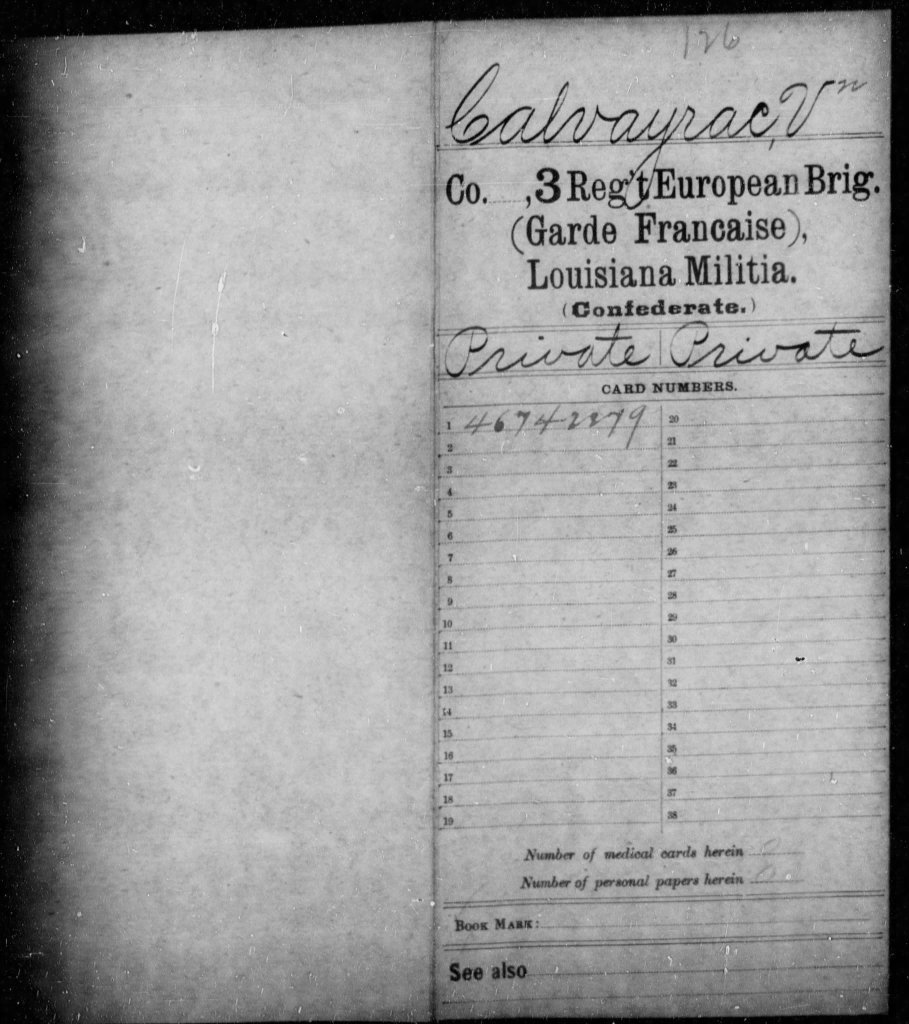 126
Calvayrac, Vn
Co. , 3 Reg't European Brig.
(Garde Francaise),
Louisiana Militia.
(Confederate.)
Private | Private
CARD NUMBERS.
1 46742279 20
2 21
3 22
4 23
5 24
6 25
7 26
8 27
9 28
10 29
11 30
12 31
13 32
14 33
15 34
16 35
17 36
18 37
19 38
Number of medical cards herein 0
Number of personal papers herein 0
BOOK MARK:
See also